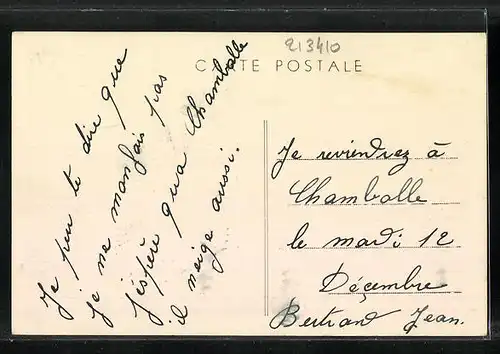 213410
CARTE POSTALE
Je peu te dire que
je ne manfais pas
j'éspère qua Chambolle
il neige aussi.
Je reviendrez à
Chambolle
le mardi 12
Décembre
Bertrand Jean.